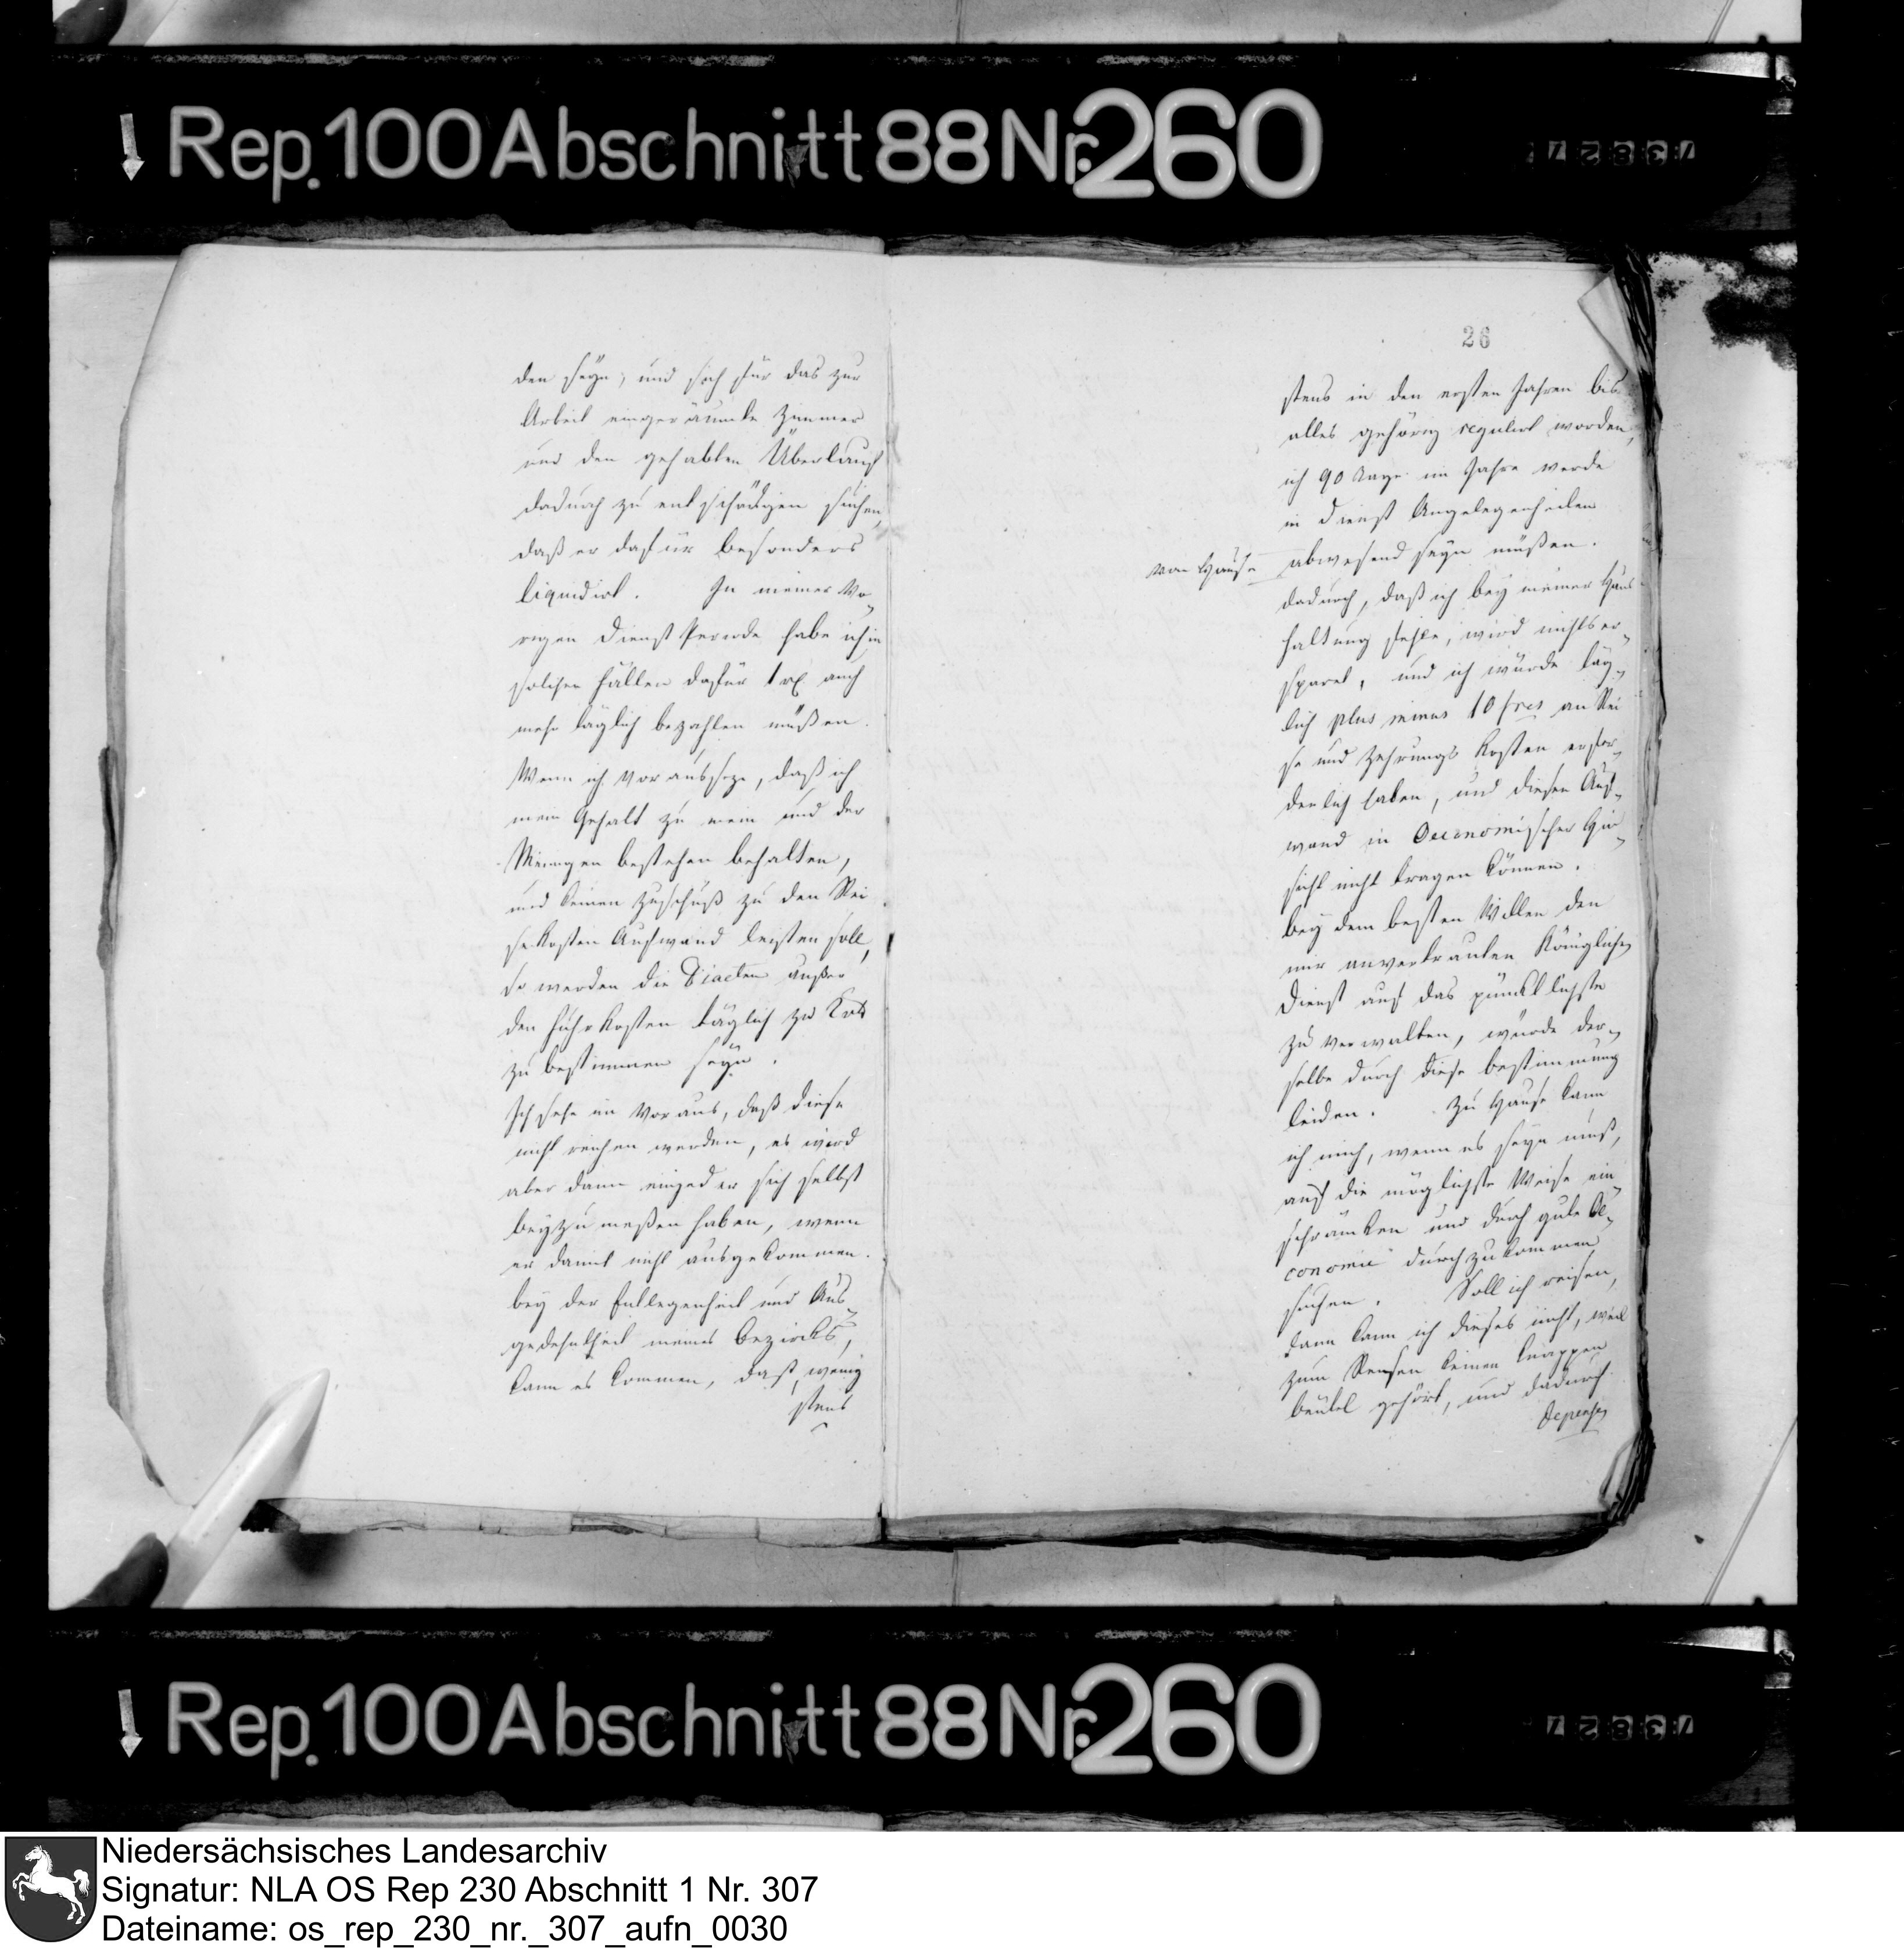 Rep. 100 Abschnitt 88 Nr. 260
73827
den seyn, und sich für das zur
Arbeit eingeräumte Zimmer
und den gehabten Überlauf
dadurch zu entschädigen suchen,
daß er dafür besonders
liquidirt. In meiner vo¬
rigen Dienst Periode habe ich in
solchen Fällen dafür 1 rl auch
mehr täglich bezahlen müßen.
Wenn ich voraussetze, daß ich
mein Gehalt zu mein und der
Meinigen bestehen behalten,
und keinen Zuschuß zu den Rei
sekosten Aufwand leisten soll,
so werden die Diaeten außer
den Fuhrkosten täglich zu
zu bestimmen seyn.
Ich sehe im Voraus, daß diese
nicht reichen werden, es wird
aber dann ein jeder sich selbst
beyzumeßen haben, wenn
er damit nicht ausgekommen.
bey der Entlegenheit und Aus¬
gedehntheit meines Bezircks,
kann es kommen, daß, wenig
stens
26
stens in den ersten Jahren bis
alles gehörig regulirt worden,
ich 90 Tage im Jahre werde
in Dienst Angelegenheiten
von Hause abwesend seyn müßen.
dadurch, daß ich bey meiner Haus
haltung fehle, wird nichts er¬
sparet, und ich würde täg¬
lich plus minus 10 frcs an Rei
se und Zehrungs Kosten erfor¬
derlich haben, und diesen Auf¬
wand in Oeconomischer Hin¬
sicht nicht tragen können.
bey dem besten Willen den
mir anvertrauten Königlichen
Dienst auf das pünktlichste
zu verwalten, würde der¬
selbe durch diese Bestimmung
leiden. Zu Hause kann
ich mich, wenn es seyn muß,
auf die möglichste Weise ein
schränken und durch gute Oe¬
conomie durchzukommen
suchen. Soll ich reisen,
dann kann ich dieses nicht, weil
zum Reisen keinen knappen
beutel gehört, und dadurch
depensen
Rep. 100 Abschnitt 88 Nr. 260
73827
Niedersächsisches Landesarchiv
Signatur: NLA OS Rep 230 Abschnitt 1 Nr. 307
Dateiname: os_rep_230_nr._307_aufn_0030